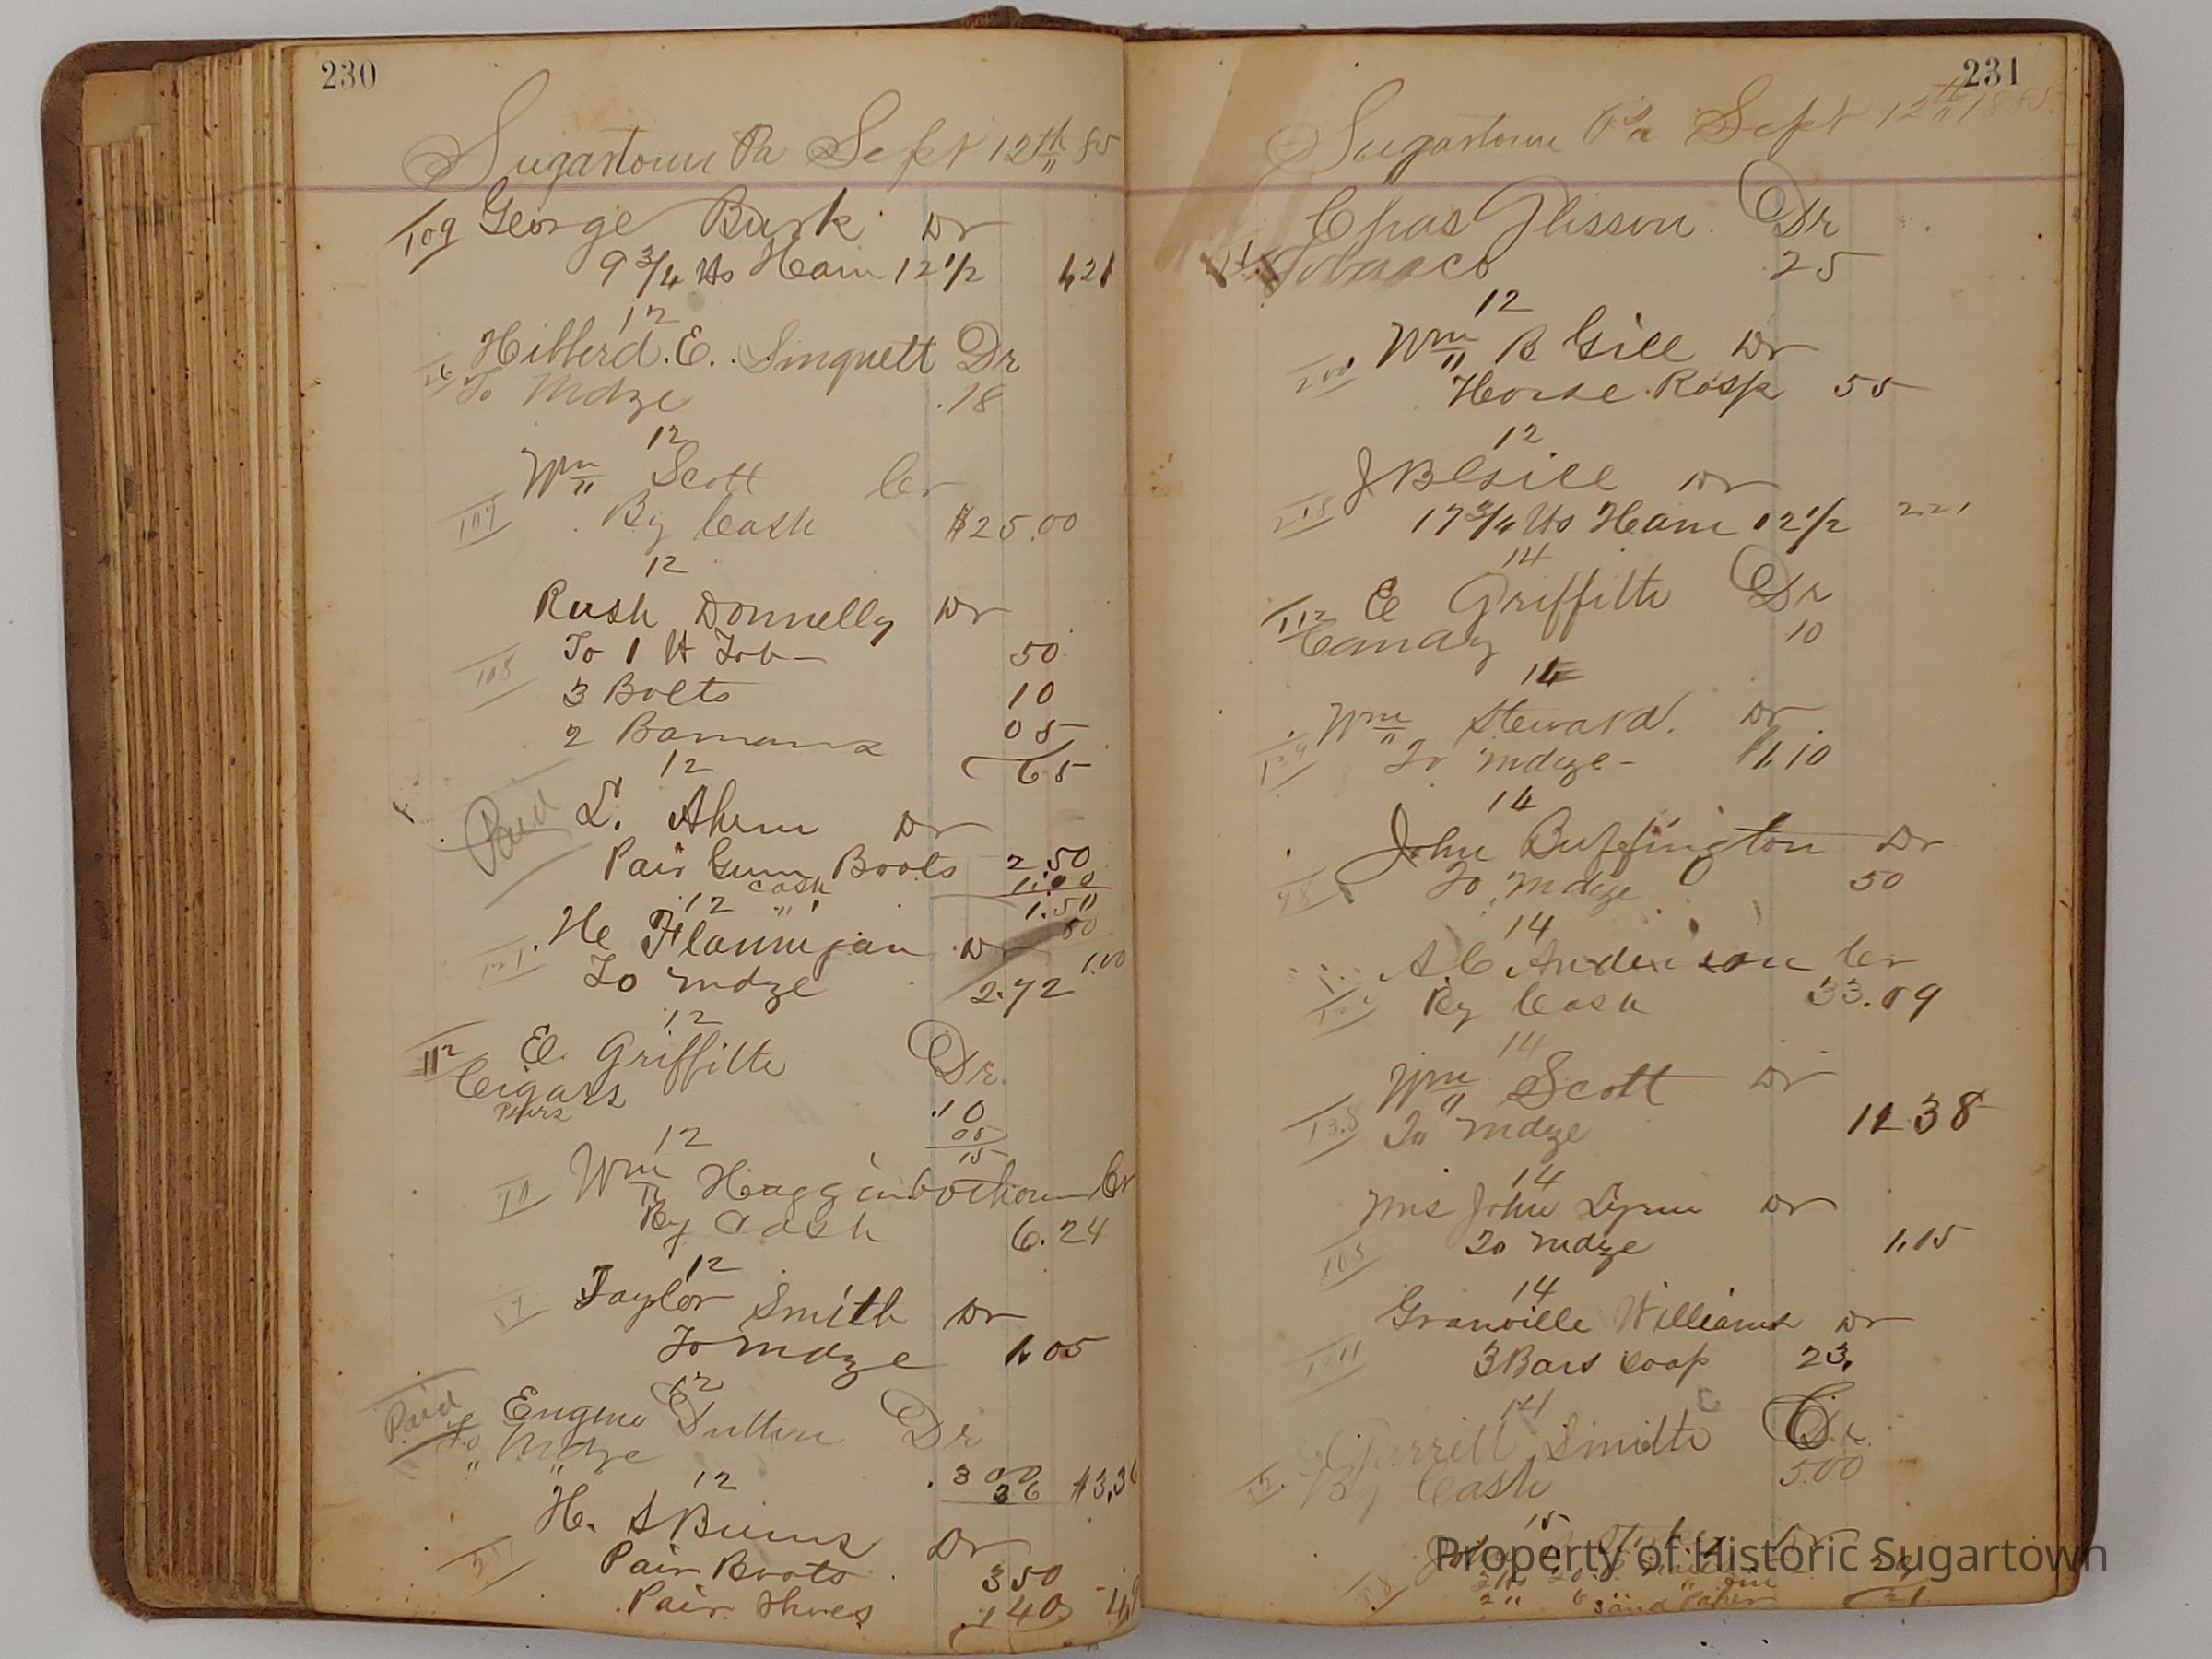 230
Sugartown Pa Sept 12th 85
109 George Burk Dr
9 3/4 lbs Ham 12 1/2 1.21
12
Hibberd. E. Dr
26 To Mdze .18
12
Wm Scott Cr
107 By Cash $25.00
12
Rush Donnelly Dr
To 1 lb Tob 50
105
3 Bolts 10
2 05
12 65
Paid L. Ahern Dr
Pair Gum Boots 2.50
cash 1.00
12 1.50
50
He Flannigan Dr
121 1.00
To Mdze 2.72
12
112 E. Griffith Dr.
Cigars .10
Pears 05
12 15
70 Wm Hagginbothom Cr
By Cash 6.24
12
87 Taylor Smith Dr
To Mdze 1.05
12
Paid Eugene Dutton Dr
To Mdze
" " .3 00
12 36 $3,36
H. A Burns Dr
Pair Boots 3 50
Pair Shoes 1 40
231
Sugartown Pa Sept 12th 1885
Chas Dr
Tobacco 25
12
Wm B Gill Dr
200 Horse Rasp 55
12
J B Gill Dr
218 17 3/4 lbs Ham 12 1/2 2 21
14
112 E Griffith Dr
Candy 10
14
Wm Steward. Dr
129 To Mdze - 1.10
14
John Buffington Dr
78 To Mdze 50
14
A C Anderson Cr
By Cash 33.09
14
Wm Scott Dr
138 To Mdze 11 38
14
Mrs John Lynn Dr
103 To Mdze 1.15
14
Granville Williams Dr
3 Bars Soap 23,
14
Garrett Smith Cr
By Cash 5.00
15
Dr
2 " 6 Sand Paper 21
Property of Historic Sugartown